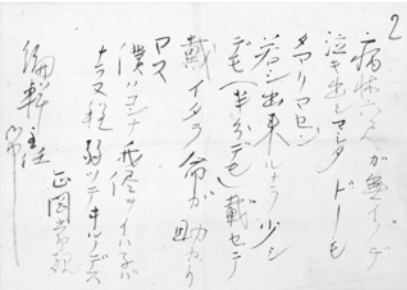 2
病牀六尺が無イノデ
泣キ出シマシタ ドーモ
タマリマセン
若シ出来ルナラ少シ
デモ(半分デモ)載セテ
戴イタラ命が助カリ
マス
僕ハコンナ我儘ヲイハネバ
ナラヌ程弱ツテヰルノデス
正岡常規
編輯主任